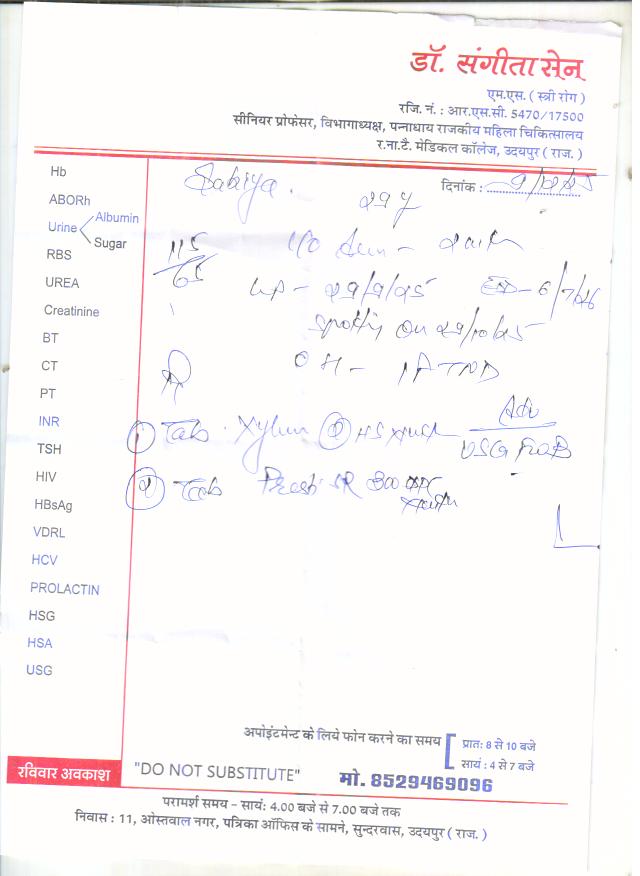 डॉ. संगीता सेन
एम.एस. ( स्त्री रोग )
रजि. नं. : आर.एस.सी. 5470/17500
सीनियर प्रोफेसर, विभागाध्यक्ष, पन्नाधाय राजकीय महिला चिकित्सालय
र.ना.टै. मेडिकल कॉलेज, उदयपुर ( राज. )
दिनांक :
Sabiya.
29 y
115
65
29/9/25
6/7/26
Spotting On 29/10/25
OH -
Adv
USG
① Tab.
② Tab SR 300
Hb
ABORh
Urine
Albumin
Sugar
RBS
UREA
Creatinine
BT
CT
PT
INR
TSH
HIV
HBsAg
VDRL
HCV
PROLACTIN
HSG
HSA
USG
अपोइंटमेन्ट के लिये फोन करने का समय
प्रात: 8 से 10 बजे
सायं : 4 से 7 बजे
रविवार अवकाश
"DO NOT SUBSTITUTE"
मो. 8529469096
परामर्श समय – सायं: 4.00 बजे से 7.00 बजे तक
निवास : 11, ओस्तवाल नगर, पत्रिका ऑफिस के सामने, सुन्दरवास, उदयपुर ( राज. )